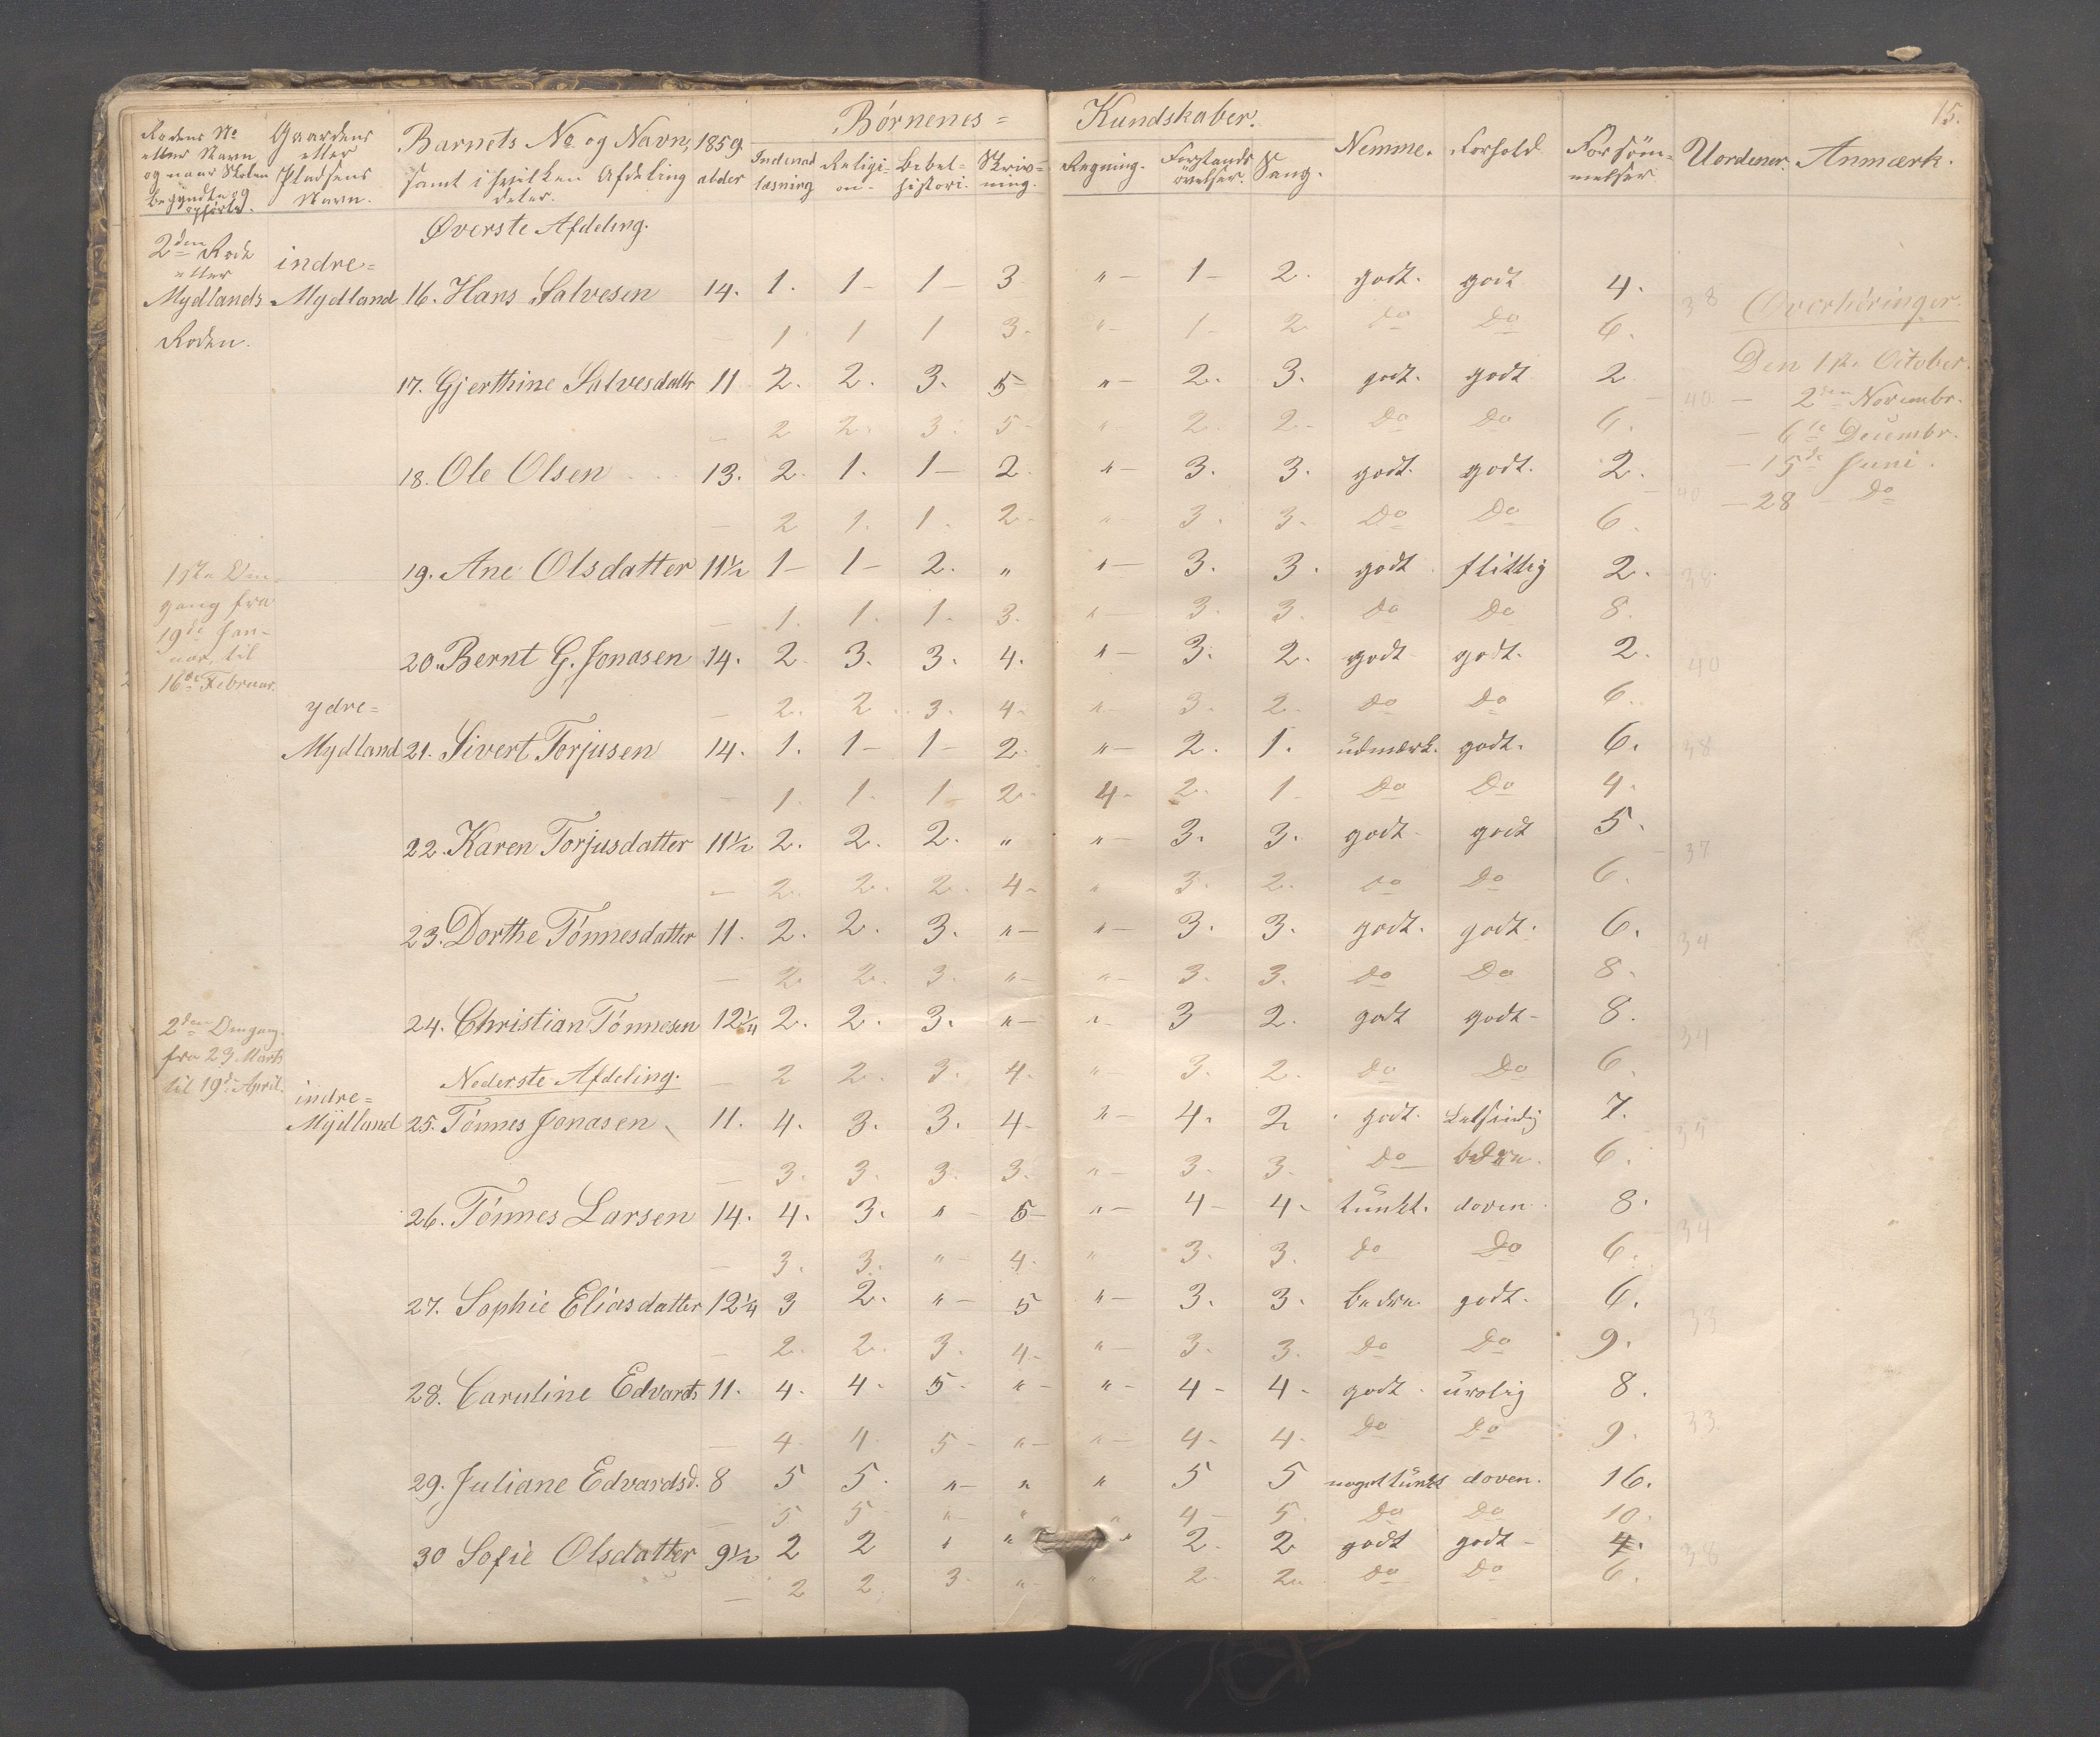 15.
Børnenes = Kundskaber.
Rodens No eller Navn og naar Skolen begyndte og ophørte.
Gaardens eller Pladsens Navn.
Barnets No og Navn, samt i hvilken Afdeling deler.
1859. alder
Indenad læsning
Religi-on-
Bibel-histori.
Skriv=ning.
Regning.
Forstands øvelser.
Sang.
Nemme.
Forhold
Forsøm-melser
Uordener.
Anmærk.
Øverste Afdeling.
2den Rode eller Mydlands Roden.
indre= Mydland
16. Hans Salvesen 14. 1. 1- 1- 3 "- 1- 2. godt. godt 4. 38
- 1 1 1 3- "- 1- 2 do Do 6.
Overhøringer.
17. Gjerthine Salvesdattr 11 2. 2. 3. 5- "- 2. 3. godt. godt 2 - 40.
Den 1ste October.
- 2 2. 3. 5- "- 2. 2- Do Do 6.
- 2den Novembr.
- 6te Decembr.
18. Ole Olsen 13. 2. 1. 1- 2. "- 3. 3. godt. godt. 2. - 40
- 15de Juni.
- 2 1. 1. 2- " 3. 3. Do Do 6.
- 28 - Do
1ste Omgang fra 19de Januar, til 16de Februar.
19. Ane Olsdatter 11½ 1- 1- 2. " "- 3. 3. godt flittig 2. - 38.
- 1. 1. 1- 3. "- 3. 3. Do Do 8.
20. Bernt G. Jonasen 14. 2. 3. 3. 4. "- 3. 2. godt godt. 2. 40
- 2. 2. 3. 4- "- 3. 2. do do 6.
ydre= Mydland
21. Sivert Torjusen 14. 1. 1- 1- 2. "- 2. 1. üdmærk. godt. 6. 38
- 1. 1. 1- 2- 4- 2. 1- Do Do 4.
22. Karen Torjusdatter 11½ 2. 2. 2. " "- 3. 3. godt- godt 5. - 37
- 2. 2. 2. 4- " 3. 2. do Do 6.
23. Dorthe Tónnesdatter 11. 2. 2. 3. "- "- 3. 3. godt. godt. 6. 34
- 2. 2. 3. "- "- 3. 3. do Do 8.
2den Omgang. fra 23 Marts til 19de April.
24. Christian Tónnesen 12¼ 2. 2. 3. "- "- 3 2. godt godt- 8. 34
- 2 2. 3. 4. "- 3. 2. Do Do 6.
Nederste Afdeling.
indre= Mÿdland
25. Tónnes Jonasen 11. 4. 3. 3. 4- "- 4. 2 godt. Letsindig 7. - 35
- 3. 3. 3. 3. "- 3. 3. Do bedre. 6.
26. Tónnes Larsen 14. 4. 3. "- 5- "- 4- 4- tünkt. doven. 8. 34
- 3. 3. "- 4. " 3. 3. do Do 6.
27. Sophie Eliasdatter 12¼ 3 2. "- 5 "- 3. 3. bedre. godt. 6. 33
- 2. 2. 3. 4- "- 3. 3. Do Do 9.
28. Caruline Edvards 11. 4. 4- 5- "- "- 4- 4- godt. ürolig 8. 33
- 4. 4 5- "- "- 4- 4. Do Do 9.
29. Juliane Edvardsd. 8 5 5. "- " " 5 5 noget tünkt doven. 16.
- 5 5- "- " " 4- 5. Do Do 10.
30 Sofie Olsdatter 9½ 2 2 " " " 2. 2 godt godt- 4. 38
- 2 2. 3. "- " 2. 2. Do Do 6.